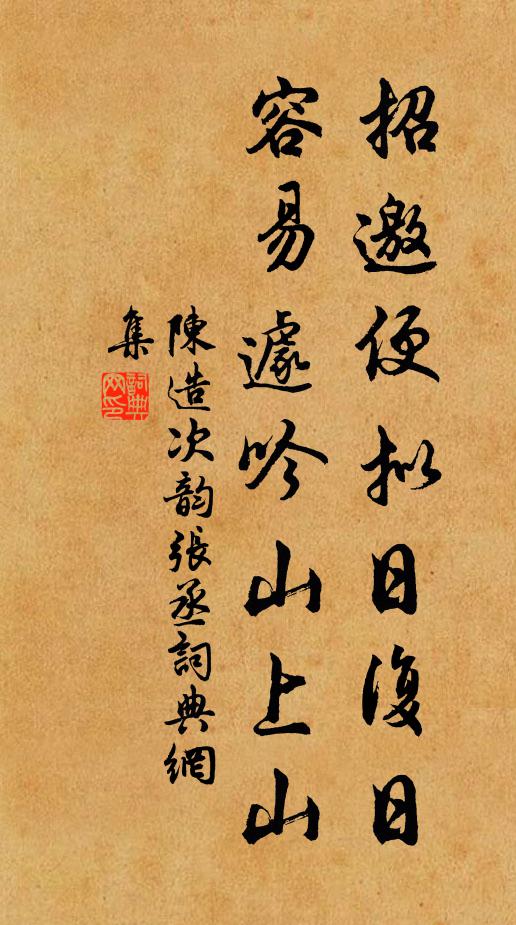 招邀便拟日復日
容易遽吟山上山
陳造次韵張丞詞典網
集
詞典网印